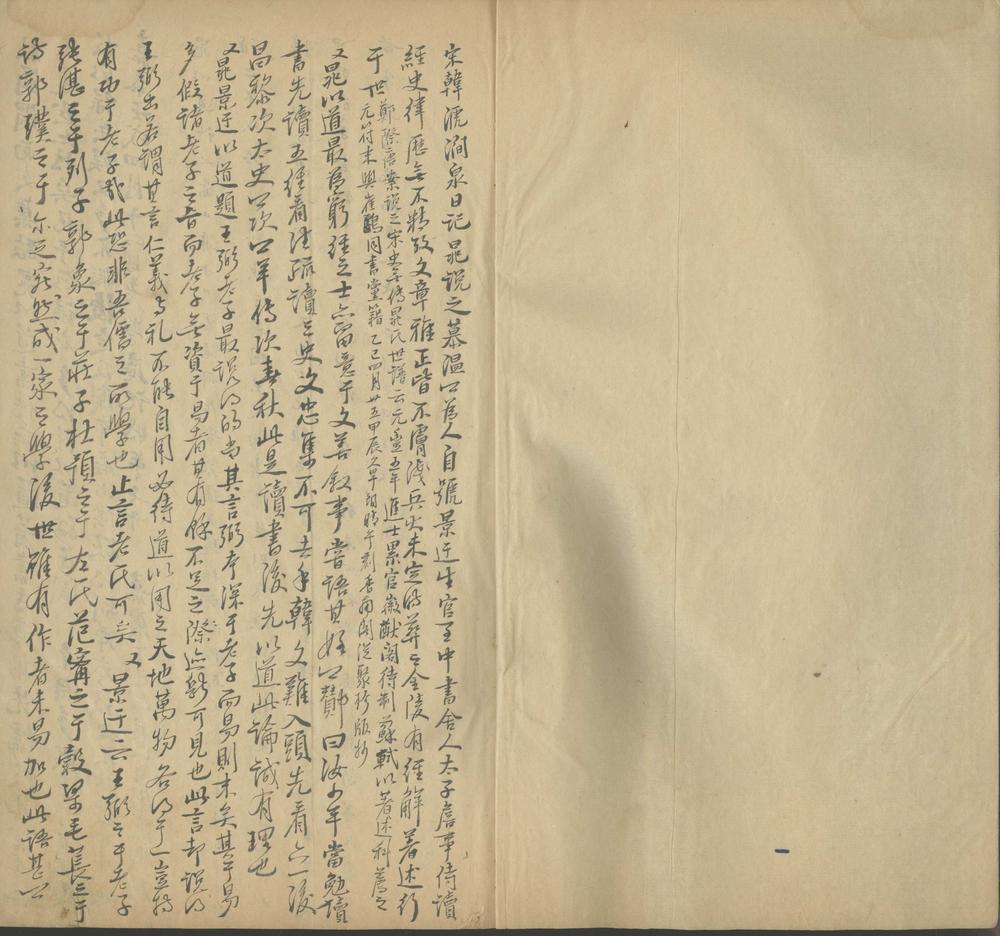 宋韓淲澗泉日記晁説之慕温公爲人自號景迂生官至中書舍人太子詹事侍讀
經史律歷無不精攷文章雅正皆不膚淺兵火未定時葬之金陵有經解著述行
于世
鄭際唐案説之宋史無傳晁氏世譜云元豐五年進士累官徽猷閣待制蘇軾以著述科薦之
元符末與崔鶠同書黨籍 乙巳四月廿五甲辰 朝晴午刻 雨閣從聚珍版抄
又晁以道最爲窮經之士亦留意于文善敘事嘗語其姪公 曰汝少年當勉讀
書先讀五經看注疏讀三史文忠集不可去手韓文難入頭先看六一後
昌黎次太史公次公羊傳次春秋此是讀書後先以道此論誠有理也
又晁景迂以道題王弼老子最説得的當其言弼本深于老子而易則末矣其于易
多假諸老子之旨而老子無資于易者其有餘不足之際迹斷可見也此言却説得
王弼出若謂其言仁義與禮不能自用必待道以用之天地萬物各得于一豈特
有功于老子哉此恐非吾儒之所學也止言老氏可矣 又景迂云王弼之于老子
張湛之于列子郭象之于莊子杜預之于左氏范甯之于穀梁毛萇之于
詩郭璞之于爾疋 然成一家之學後世雖有作者未易加也此語甚公